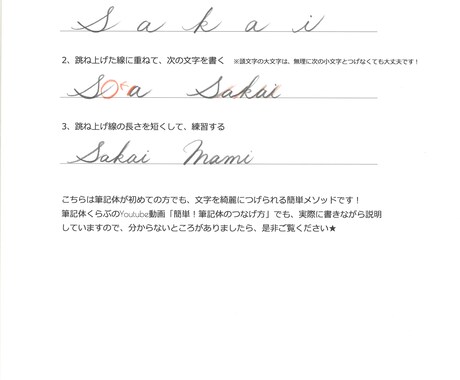 S a k a i
2、跳ね上げた線に重ねて、次の文字を書く ※頭文字の大文字は、無理に次の小文字とつなげなくても大丈夫です！
S a Sakai
3、跳ね上げ線の長さを短くして、練習する
Sakai Mami
こちらは筆記体が初めての方でも、文字を綺麗につげられる簡単メソッドです！
筆記体くらぶのYoutube動画「簡単！筆記体のつなげ方」でも、実際に書きながら説明
していますので、分からないところがありましたら、是非ご覧ください★